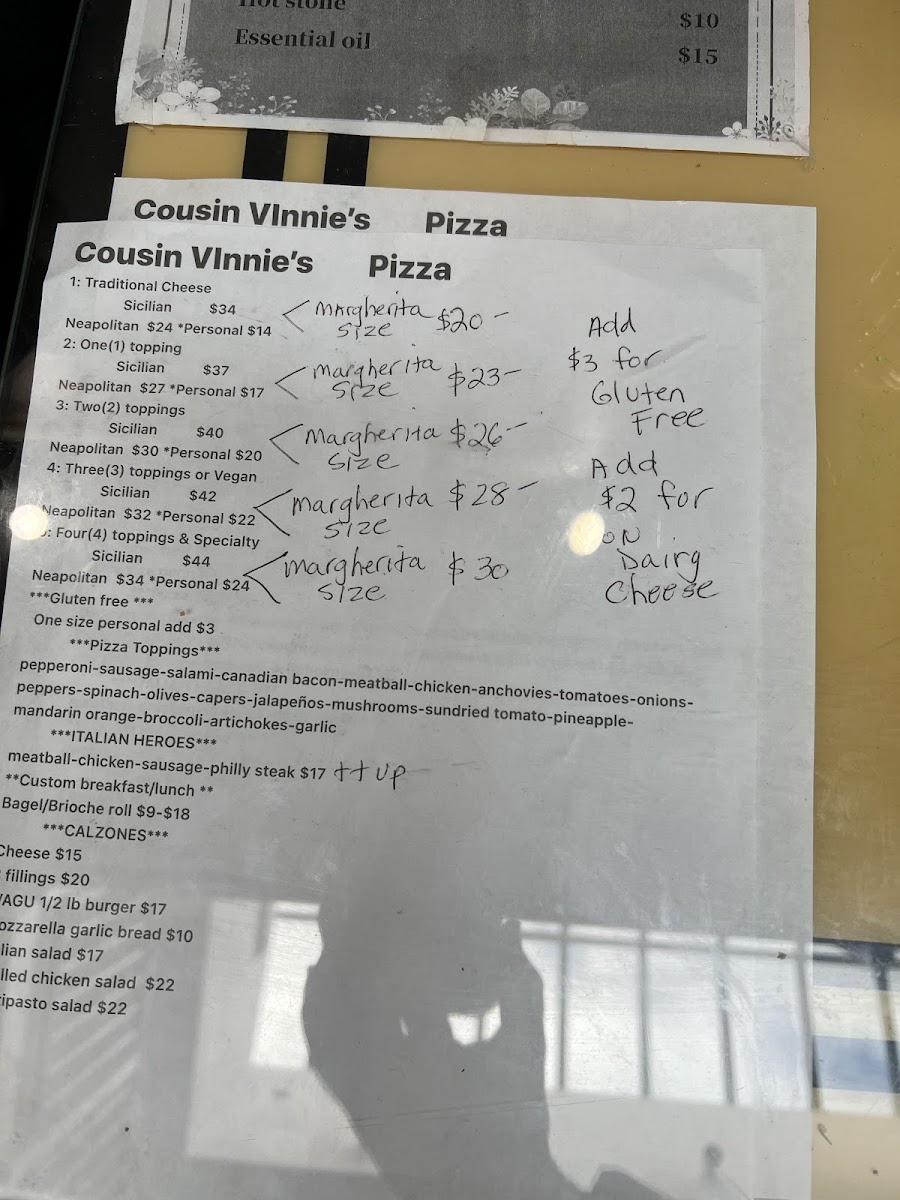 Hot stone $10
Essential oil $15
Cousin VInnie's Pizza
Cousin VInnie's Pizza
1: Traditional Cheese
Sicilian $34
Neapolitan $24 *Personal $14
Margherita size $20 -
2: One(1) topping
Sicilian $37
Neapolitan $27 *Personal $17
margherita size $23 -
3: Two(2) toppings
Sicilian $40
Neapolitan $30 *Personal $20
margherita size $26 -
4: Three(3) toppings or Vegan
Sicilian $42
Neapolitan $32 *Personal $22
margherita size $28 -
: Four(4) toppings & Specialty
Sicilian $44
Neapolitan $34 *Personal $24
margherita size $30
Add
$3 for
Gluten
Free
Add
$2 for
ON
Dairy
Cheese
***Gluten free ***
One size personal add $3
***Pizza Toppings***
pepperoni-sausage-salami-canadian bacon-meatball-chicken-anchovies-tomatoes-onions-
peppers-spinach-olives-capers-jalapeños-mushrooms-sundried tomato-pineapple-
mandarin orange-broccoli-artichokes-garlic
***ITALIAN HEROES***
meatball-chicken-sausage-philly steak $17 ++ up
**Custom breakfast/lunch **
Bagel/Brioche roll $9-$18
***CALZONES***
Cheese $15
fillings $20
AGU 1/2 lb burger $17
ozzarella garlic bread $10
lian salad $17
lled chicken salad $22
ipasto salad $22